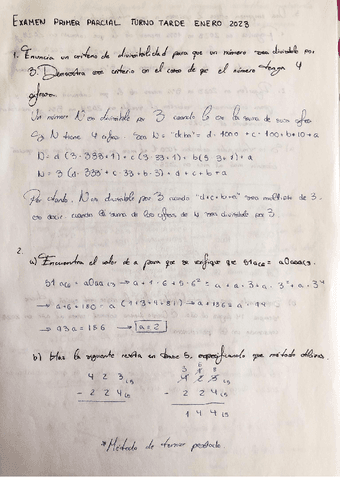 EXAMEN PRIMER PARCIAL TURNO TARDE ENERO 2023
1. Enuncia un criterio de divisibilidad para que un número sea divisible por
3. Demuestra ese criterio en el caso de que el número tenga 4
cifras.
Un número N es divisible por 3 cuando lo es la suma de sus cifras
Si N tiene 4 cifras N = "dcba" = d·1000 + c·100 + b·10 + a
N = d (3·333+1) + c (3·33+1) + b(3·3+1) + a
N = 3 (d·333 + c·33 + b·3) + d + c + b + a
Por tanto, N es divisible por 3 cuando "d+c+b+a" sea múltiplo de 3,
es decir cuando la suma de las cifras de N sea divisible por 3.
2.
a) Encuentra el valor de a para que se verifique que
→ 93a = 186 → a = 2
b) Haz la siguiente resta en base 5, especificando que método utilizas.
4 2 3
- 2 2 4
- 2 2 4
1 4 4
*Método de tomar prestado.